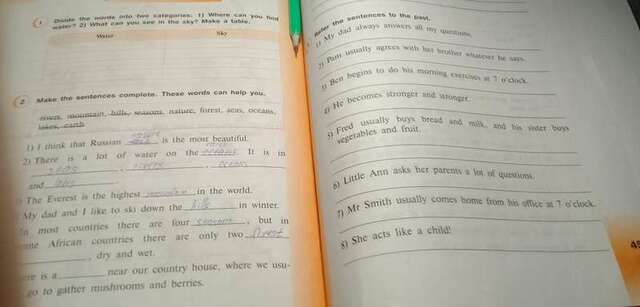 1 Divide the words into two categories: 1) Where can you find
water? 2) What can you see in the sky? Make a table.
Water Sky
2 Make the sentences complete. These words can help you.
rivers, mountain, hills, seasons, nature, forest, seas, oceans,
lakes, earth
1) I think that Russian is the most beautiful.
2) There is a lot of water on the It is in
seas, rivers, oceans
and
The Everest is the highest mountain in the world.
My dad and I like to ski down the hills in winter.
In most countries there are four seasons, but in
some African countries there are only two forest
, dry and wet.
ere is a near our country house, where we usu-
go to gather mushrooms and berries.
Refer the sentences to the past.
1) My dad always answers all my questions.
2) Pam usually agrees with her brother whatever he says.
3) Ben begins to do his morning exercises at 7 o'clock.
4) He becomes stronger and stronger.
5) Fred usually buys bread and milk, and his sister buys
vegetables and fruit.
6) Little Ann asks her parents a lot of questions.
7) Mr Smith usually comes home from his office at 7 o'clock.
8) She acts like a child!